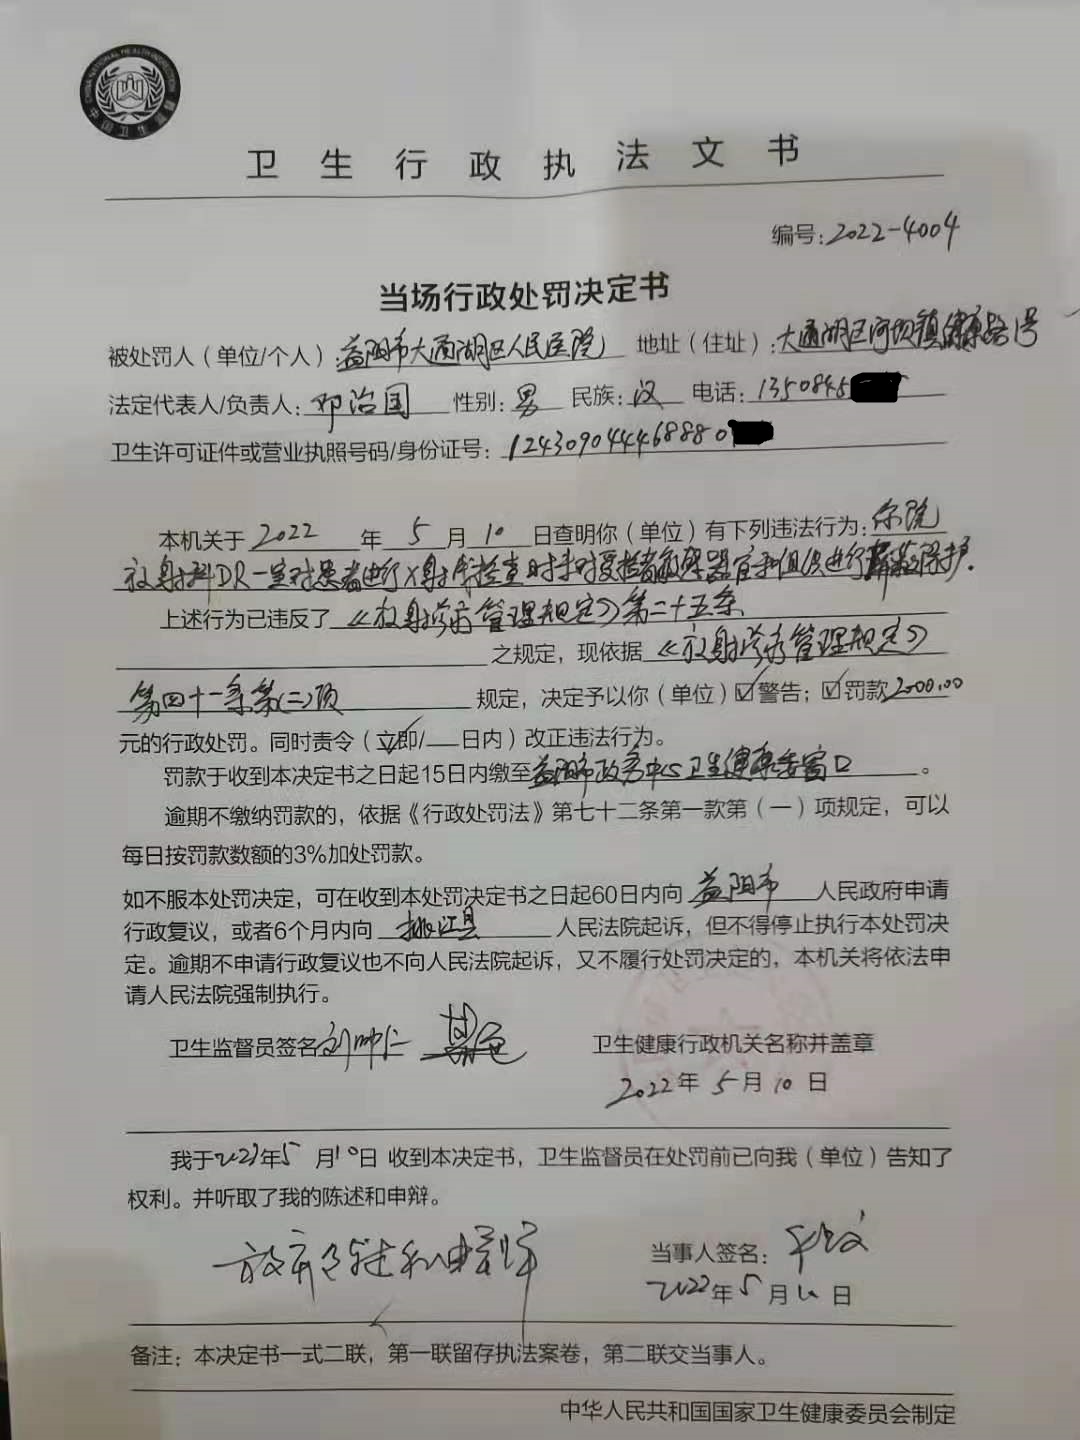 CHINA NATIONAL HEALTH INSPECTION
中国卫生监督
卫生行政执法文书
编号:2022-4004
当场行政处罚决定书
被处罚人(单位/个人):益阳市大通湖区人民医院 地址(住址):大通湖区河坝镇健康路1号
法定代表人/负责人:邓治国 性别:男 民族:汉 电话:1350845
卫生许可证件或营业执照号码/身份证号:12430904446888 0
本机关于2022年5月10日查明你(单位)有下列违法行为:你院
放射科DR一室对患者进行X射线检查时未对受检者敏感器官和组织进行屏蔽保护.
上述行为已违反了《放射诊疗管理规定》第二十五条
之规定,现依据《放射诊疗管理规定》
第四十一条第(二)项 规定,决定予以你(单位)☑警告;☑罚款2000.00
元的行政处罚。同时责令(立即/__日内)改正违法行为。
罚款于收到本决定书之日起15日内缴至益阳市政务中心卫生健康委窗口。
逾期不缴纳罚款的,依据《行政处罚法》第七十二条第一款第(一)项规定,可以
每日按罚款数额的3%加处罚款。
如不服本处罚决定,可在收到本处罚决定书之日起60日内向 益阳市 人民政府申请
行政复议,或者6个月内向 桃江县 人民法院起诉,但不得停止执行本处罚决
定。逾期不申请行政复议也不向人民法院起诉,又不履行处罚决定的,本机关将依法申
请人民法院强制执行。
卫生监督员签名 刘帅仁 卫生健康行政机关名称并盖章
2022年5月10日
我于2022年5月10日 收到本决定书,卫生监督员在处罚前已向我(单位)告知了
权利。并听取了我的陈述和申辩。
放弃陈述和申辩
当事人签名:
2022年5月10日
备注:本决定书一式二联,第一联留存执法案卷,第二联交当事人。
中华人民共和国国家卫生健康委员会制定